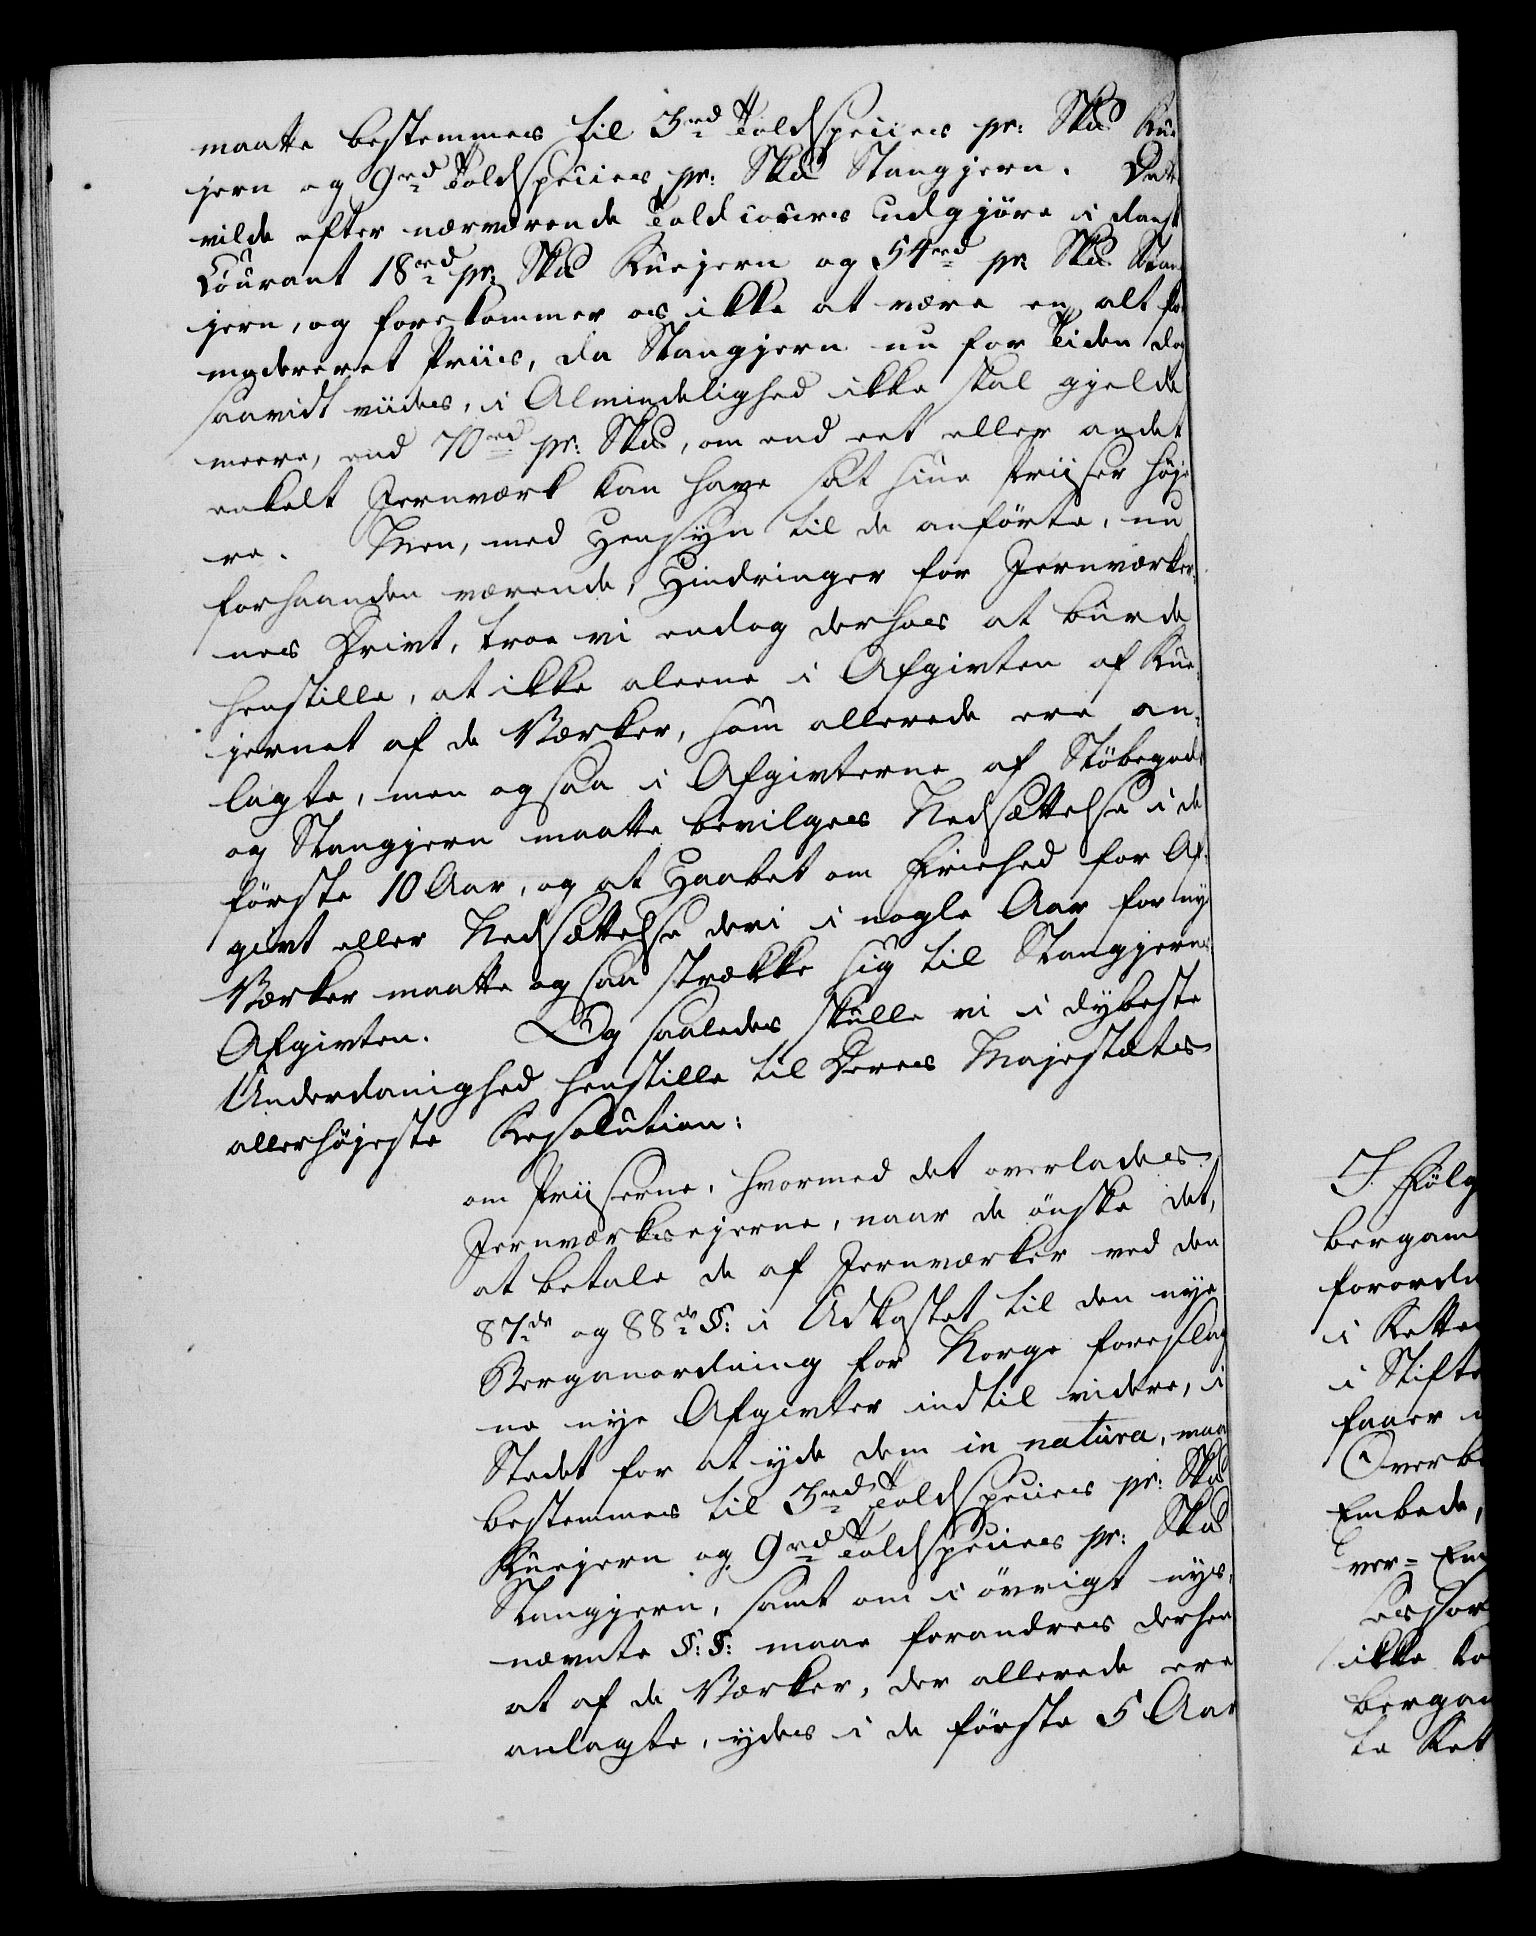 maatte bestemmes til 3rd Toldspecies pr: Sk℔ Rue
jern og 9rd Toldspecies pr: Sk℔ Stangjern. Dette
vilde efter nærværende Toldcours udgjöre i dansk
Courant 18rd pr: Sk℔ Ruejern og 54rd pr Sk℔ Stan
jern, og forekommer os ikke at være en alt for
modereret Priis, da Stangjern nu for Tiden dog
saavidt viides, i Almindelighed ikke skal gjelde
meere, end 70rd pr: Sk℔, om end eet eller andet
enkelt Jernværk kan have sat sine Priiser höje
re. Men, med Hensyn til de anförte, nu
forhaanden værende, Hindringer for Jernværker:
nes Drivt, troe vi endog derhos at burde
henstille, at ikke aleene i Afgivten af Rue:
jernet af de Værker, som allerede ere an:
lagte, men ogsaa i Afgivterne af Stöbegods
og Stangjern maatte bevilges Nedsættelse i de
förste 10 Aar, og at Haabet om Friehed for Af:
givt eller Nedsættelse deri i nogle Aar for nye
Værker maatte ogsaa strække sig til Stangjerns
Afgivten. Og saaledes skulle vi i dybeste
Underdanighed henstille til Deres Majestæts
allerhöjeste Resolution:
om Priiserne, hvormed det overlades
Jernværksejerne, naar de önske det,
at betale de af Jernværker ved den
87de og 88de §: i Udkastet til den nye
Berganordning for Norge foreslag
ne nye Afgivter indtil videre, i
Stedet for at yde dem in natura, maa
bestemmes til 3rd Toldspecies pr: Sk℔
Ruejern og 9rd Toldspecies pr: Sk℔
Stangjern, samt om i övrigt nys:
nævnte §:§: maae forandres derhen
at af de Værker, der allerede ere
anlagte, ydes i de förste 5 Aar
I Fölg
bergam
forordn
i Rette
i Stift
faaer
Overbe
Embede,
ver= Em
ikke ko
bergam
te Ret